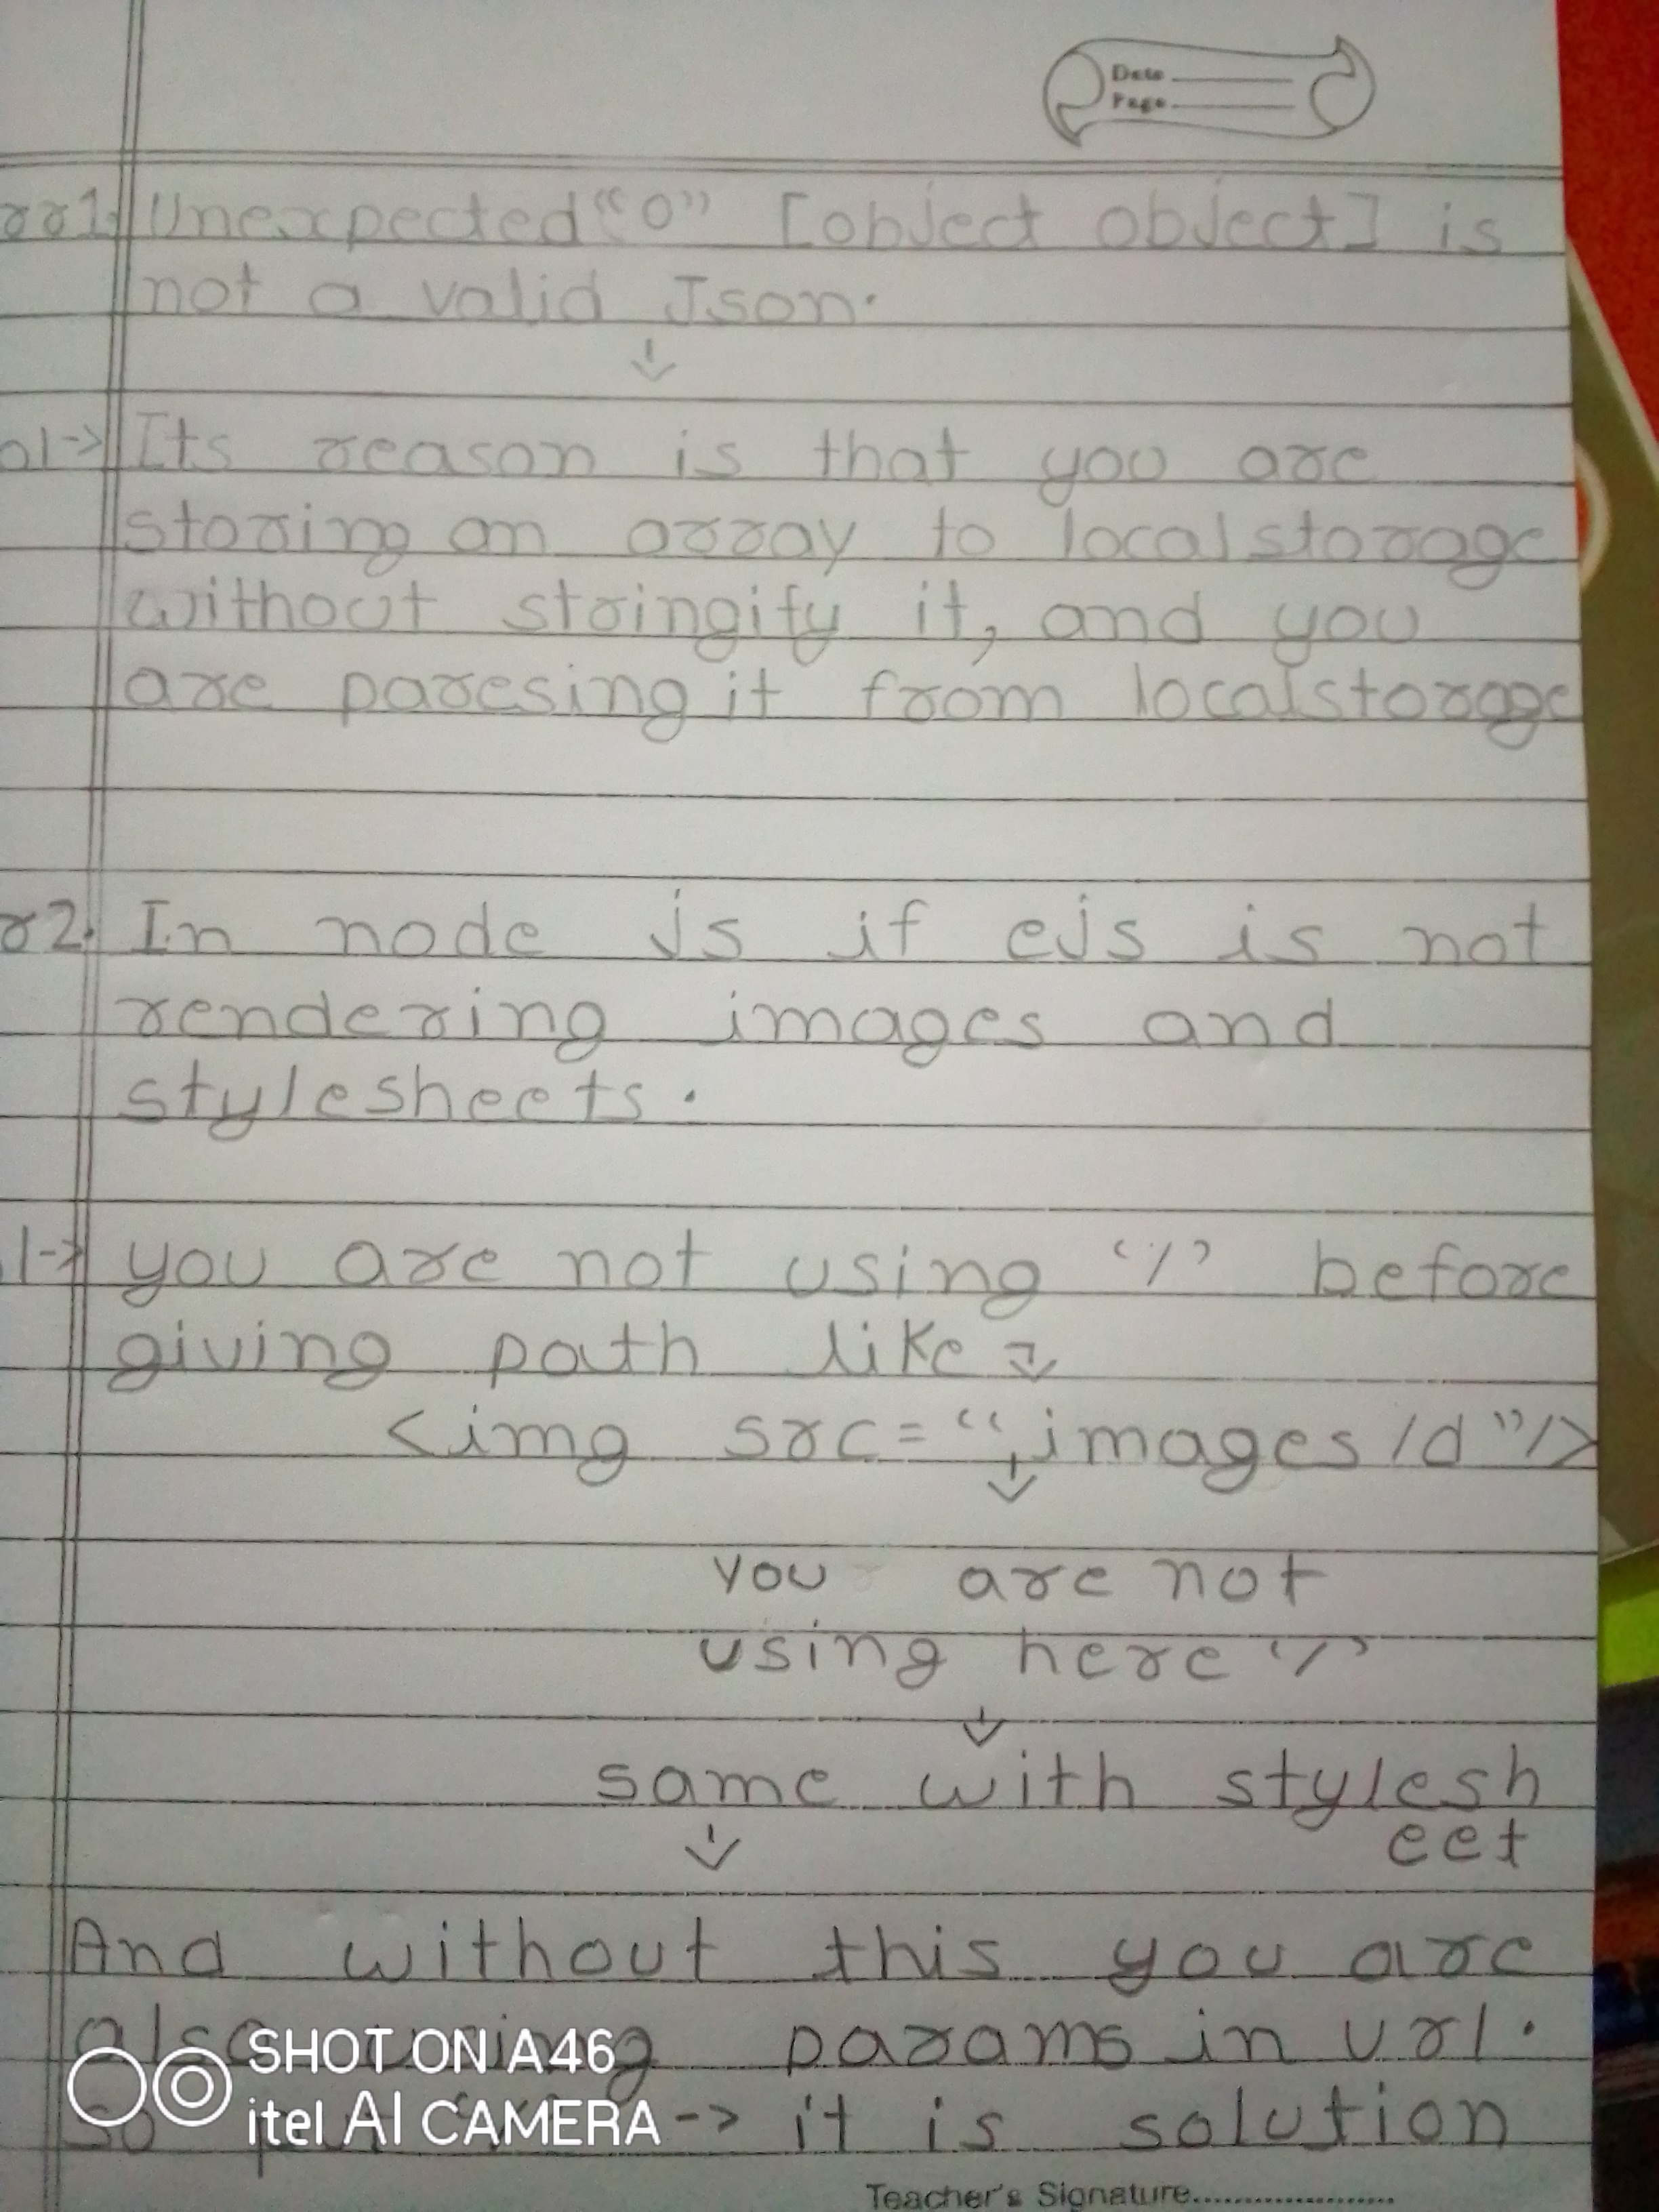 Date
Page
rr1. Unexpected "O" [object object] is
not a valid Json.
ol-> Its reason is that you are
storing an array to localstorage
without stringify it, and you
are paresing it from localstorage
r2. In node js if ejs is not
rendering images and
stylesheets.
l-> you are not using '/' before
giving path like
<img src="images/d"/>
you are not
using here '/'
same with stylesh
eet
And without this you are
also using params in url.
So -> it is solution
SHOT ON A46
itel AI CAMERA
Teacher's Signature........................